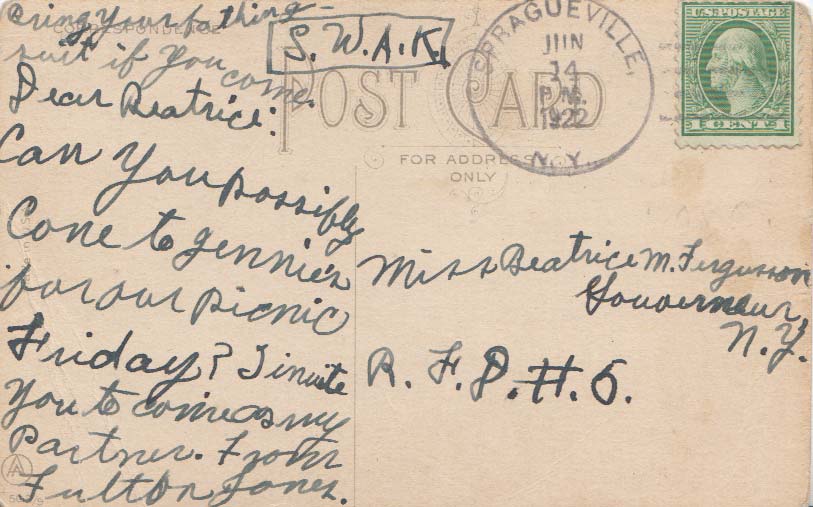 Bring your bathing-
suit if you come.
CORRESPONDENCE
S.W.A.K.
POST CARD
FOR ADDRESS
ONLY
SPRAGUEVILLE,
JUN
14
P.M.
1922
N.Y.
U.S. POSTAGE
1 CENT 1
Dear Beatrice:
Can you possibly
Come to Jennie's
for our picnic
Friday? I invite
you to come as my
Partner. From
Fulton Jones.
Miss Beatrice M. Ferguson
Gouverneur,
N.Y.
R.F.D.#.6.